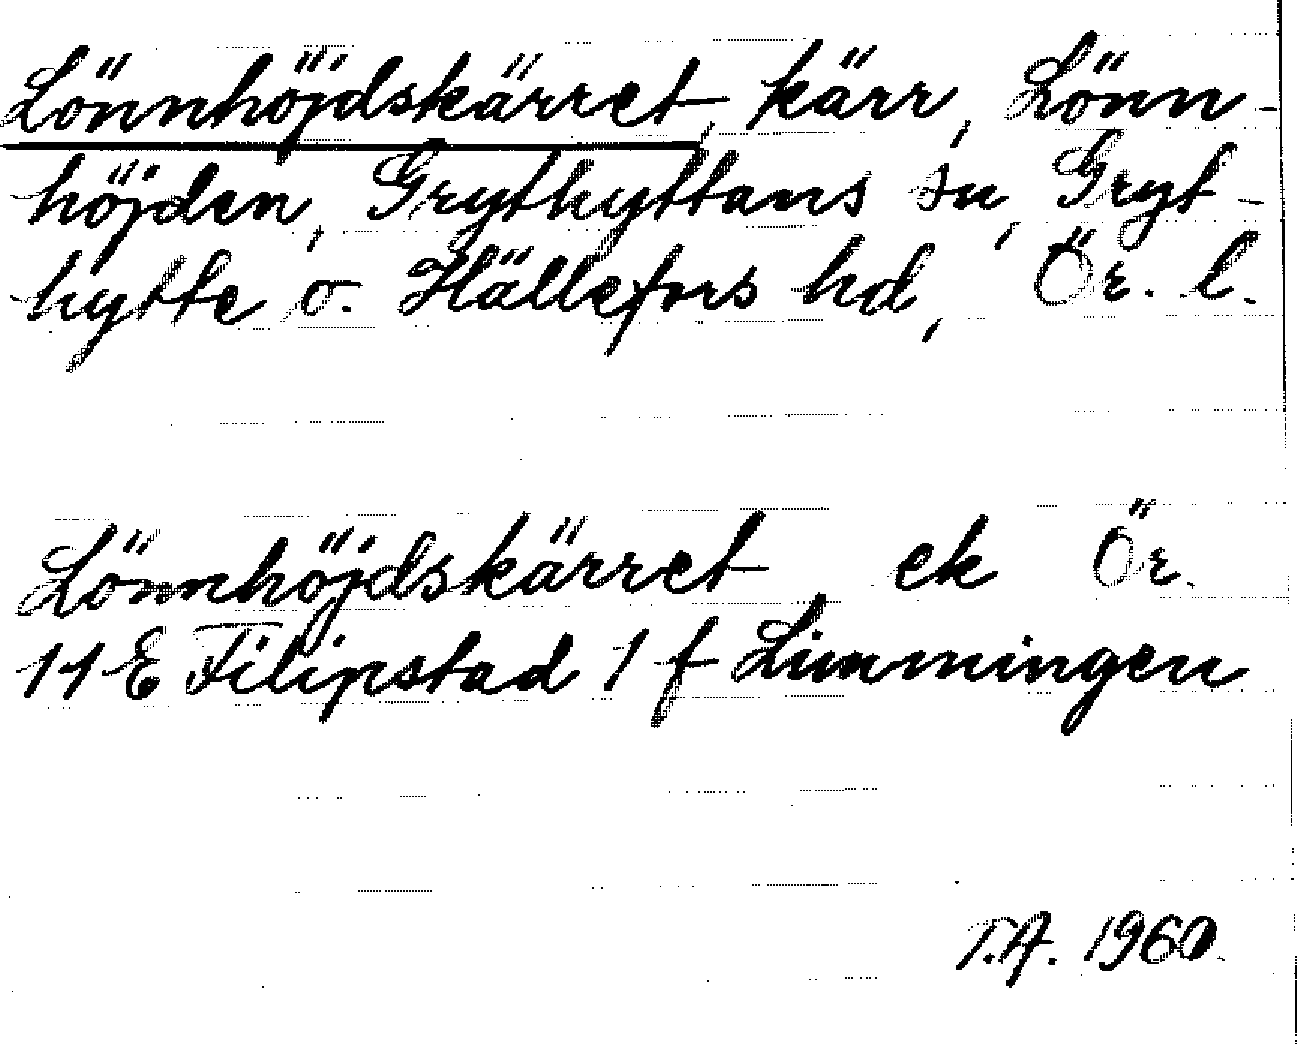 Lönnhöjdskärret, kärr, Lönn-
höjden, Grythyttans sn, Gryt-
hytte o. Hällefors hd, Ör. l.
Lönnhöjdskärret ek Ör.
11 E Filipstad 1 f Limmingen
T.A. 1960.